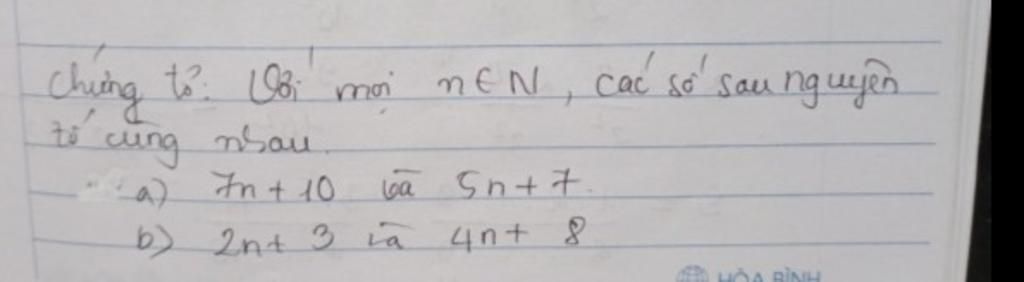 Chứng tỏ: Với mọi n ∈ N, các số sau nguyên
tố cùng nhau.
a) 7n + 10 và 5n + 7.
b) 2n + 3 và 4n + 8
HÒA BÌNH